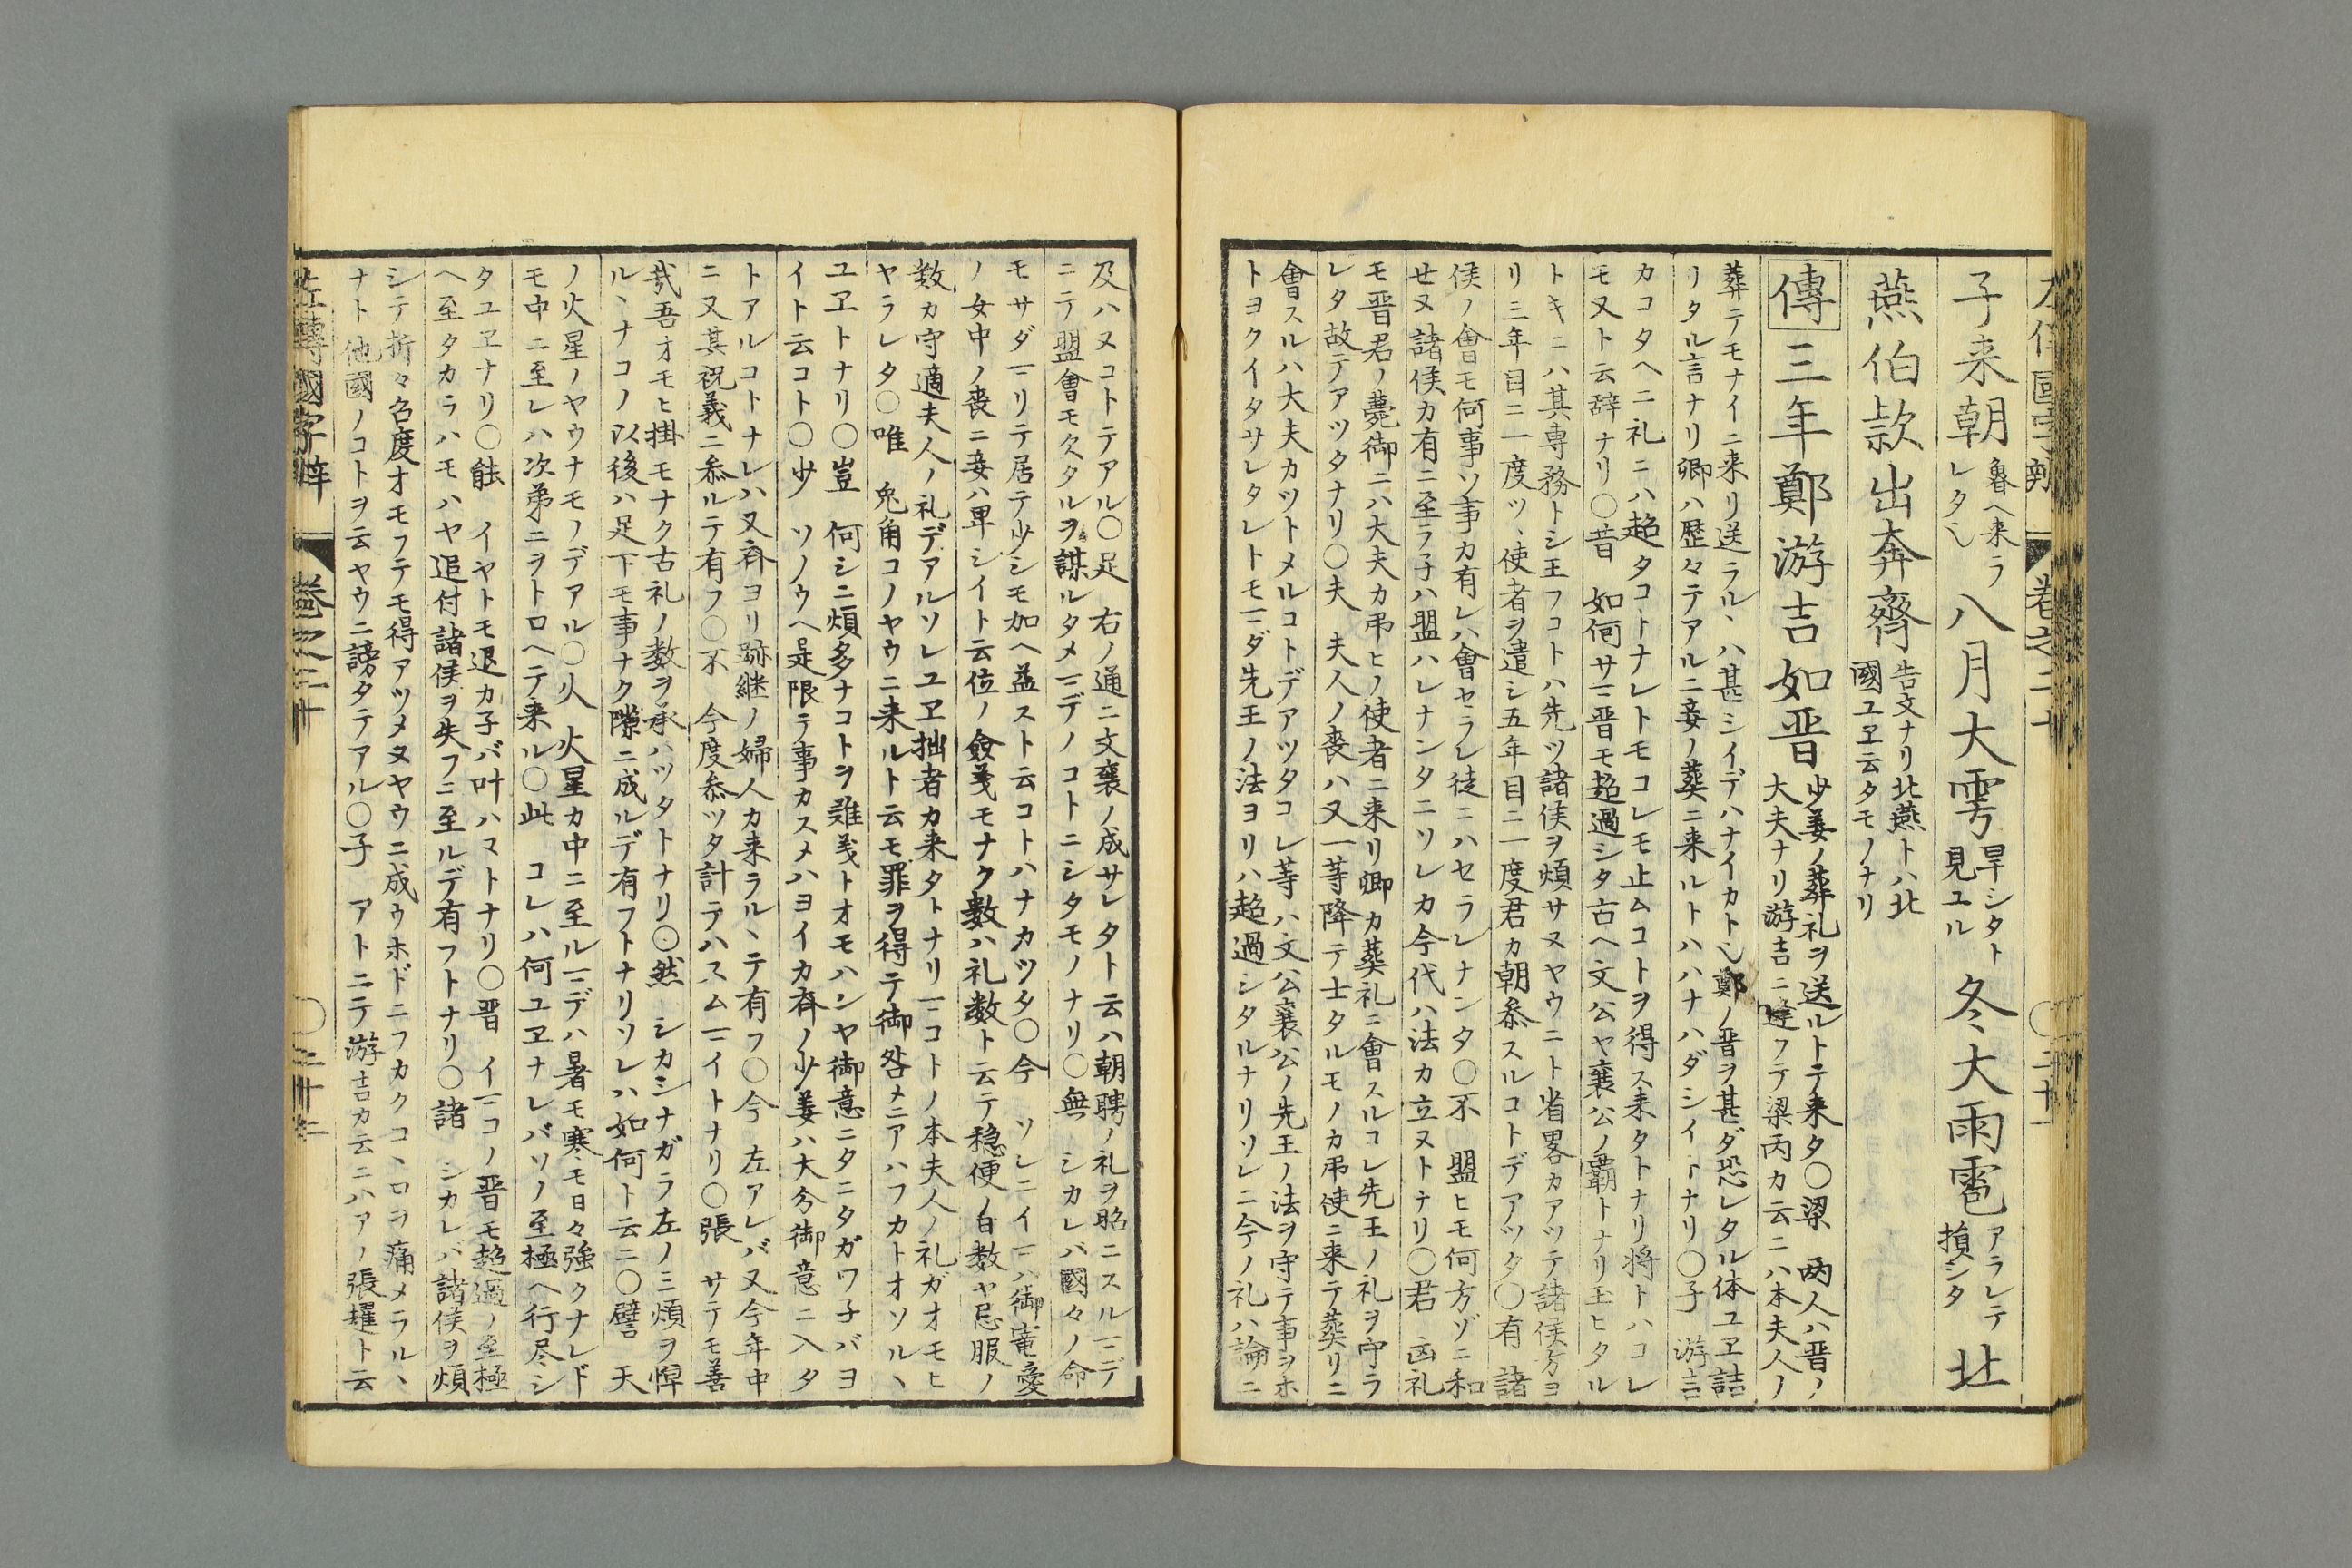 子来朝魯ヘ来ラレタ也八月大雩旱シタト見ユル冬大雨雹アラレテ損シタ北
燕伯款出奔齊告文ナリ北燕トハ北國ユヱ云タモノナリ
傳三年鄭游吉如晋少姜ノ葬礼ヲ送ルトテ来タ〇梁 両人ハ晋ノ
大夫ナリ游吉ニ逢フテ梁丙カ云ニハ本夫人ノ
葬テモナイニ来リ送ラルヽハ甚シイデハナイカト也鄭ノ晋ヲ甚ダ恐レタル体ユヱ詰
リタル言ナリ卿ハ歴々テアルニ妾ノ葬ニ来ルトハハナハダシイトナリ〇子 游吉
カコタヘニ礼ニハ超タコトナレトモコレモ止ムコトヲ得ス来タトナリ将トハコレ
モ又ト云辞ナリ〇昔 如何サマ晋モ超過シタ古ヘ文公ヤ襄公ノ覇トナリ玉ヒタル
トキニハ其専務トシ玉フコトハ先ツ諸侯ヲ煩サヌヤウニト省畧カアツテ諸侯方ヨ
リ三年目ニ一度ツヽ使者ヲ遣シ五年目ニ一度君カ朝参スルコトデアツタ〇有 諸
侯ノ會モ何事ソ事カ有レハ會セラレ徒ニハセラレナンタ〇不 盟ヒモ何方ゾニ和
せヌ諸侯カ有ニ至ラ子ハ盟ハレナンタニソレカ今代ハ法カ立ヌトナリ〇君 凶礼
モ晋君ノ薨御ニハ大夫カ弔ヒノ使者ニ来リ卿カ葬礼ニ會スルコレ先王ノ礼ヲ守ラ
レタ故テアツタナリ〇夫 夫人ノ喪ハ又一等降テ士タルモノカ弔使ニ来テ葬リニ
會スルハ大夫カツトメルコトデアツタコレ等ハ文公襄公ノ先王ノ法ヲ守テ事ヲホ
トヨクイタサレタレトモマダ先王ノ法ヨリハ超過シタルナリソレニ今ノ礼ハ論ニ
及ハヌコトテアル〇足 右ノ通ニ文襄ノ成サレタト云ハ朝聘ノ礼ヲ昭ニスルマデ
ニテ盟會モ欠タルヲ謀ルタメマデノコトニシタモノナリ〇無 シカレバ國々ノ命
モサダマリテ居テ少シモ加ヘ益スト云コトハナカツタ〇今 ソレニイマハ御寵愛
ノ女中ノ喪ニ妾ハ卑シイト云位ノ僉義モナク數ハ礼数ト云テ穏便ノ白数ヤ忌服ノ
数カ守適夫人ノ礼デアルソレユヱ拙者カ来タトナリマコトノ本夫人ノ礼ガオモヒ
ヤラレタ〇唯 兎角コノヤウニ来ルト云モ罪ヲ得テ御咎メニアハフカトオソルヽ
ユヱトナリ〇豈 何シニ煩多ナコトヲ難義トオモハンヤ御意ニタニタガワ子バヨ
イト云コト〇少 ソノウヘ是限テ事カスメハヨイカ齊ノ少姜ハ大分御意ニ入タ
トアルコトナレハ又齊ヨリ跡継ノ婦人カ来ラルヽテ有フ〇今 左アレバ又今年中
ニ又其祝義ニ参ルテ有フ〇不 今度参ツタ計テハスムマイトナリ〇張 サテモ善
哉吾オモヒ掛モナク古礼ノ数ヲ承ハツタトナリ〇然 シカシナガラ左ノミ煩ヲ憚
ルヽナコノ以後ハ足下モ事ナク隙ニ成ルデ有フトナリソレハ如何ト云ニ〇譬 天
ノ火星ノヤウナモノデアル〇火 火星カ中ニ至ルマデハ暑モ寒モ日々強クナレド
モ中ニ至レハ次弟ニヲトロヘテ来ル〇此 コレハ何ユヱナレバソノ至極ヘ行尽シ
タユヱナリ〇能 イヤトモ退カ子バ叶ハマトナリ〇晋 イマコノ晋モ超過ノ至極
ヘ至タカラハモハヤ追付諸侯ヲ失フニ至ルデ有フトナリ〇諸 シカレバ諸侯ヲ煩
シテ折々召度オモフテモ得アツメヌヤウニ成ウホドニフカクコヽロヲ痛メラルヽ
ナト他國ノコトヲ云ヤウニ謗タテアル〇子 アトニテ游吉カ云ニハアノ張趯ト云
左傳國字辯 卷之二十 〇二十二